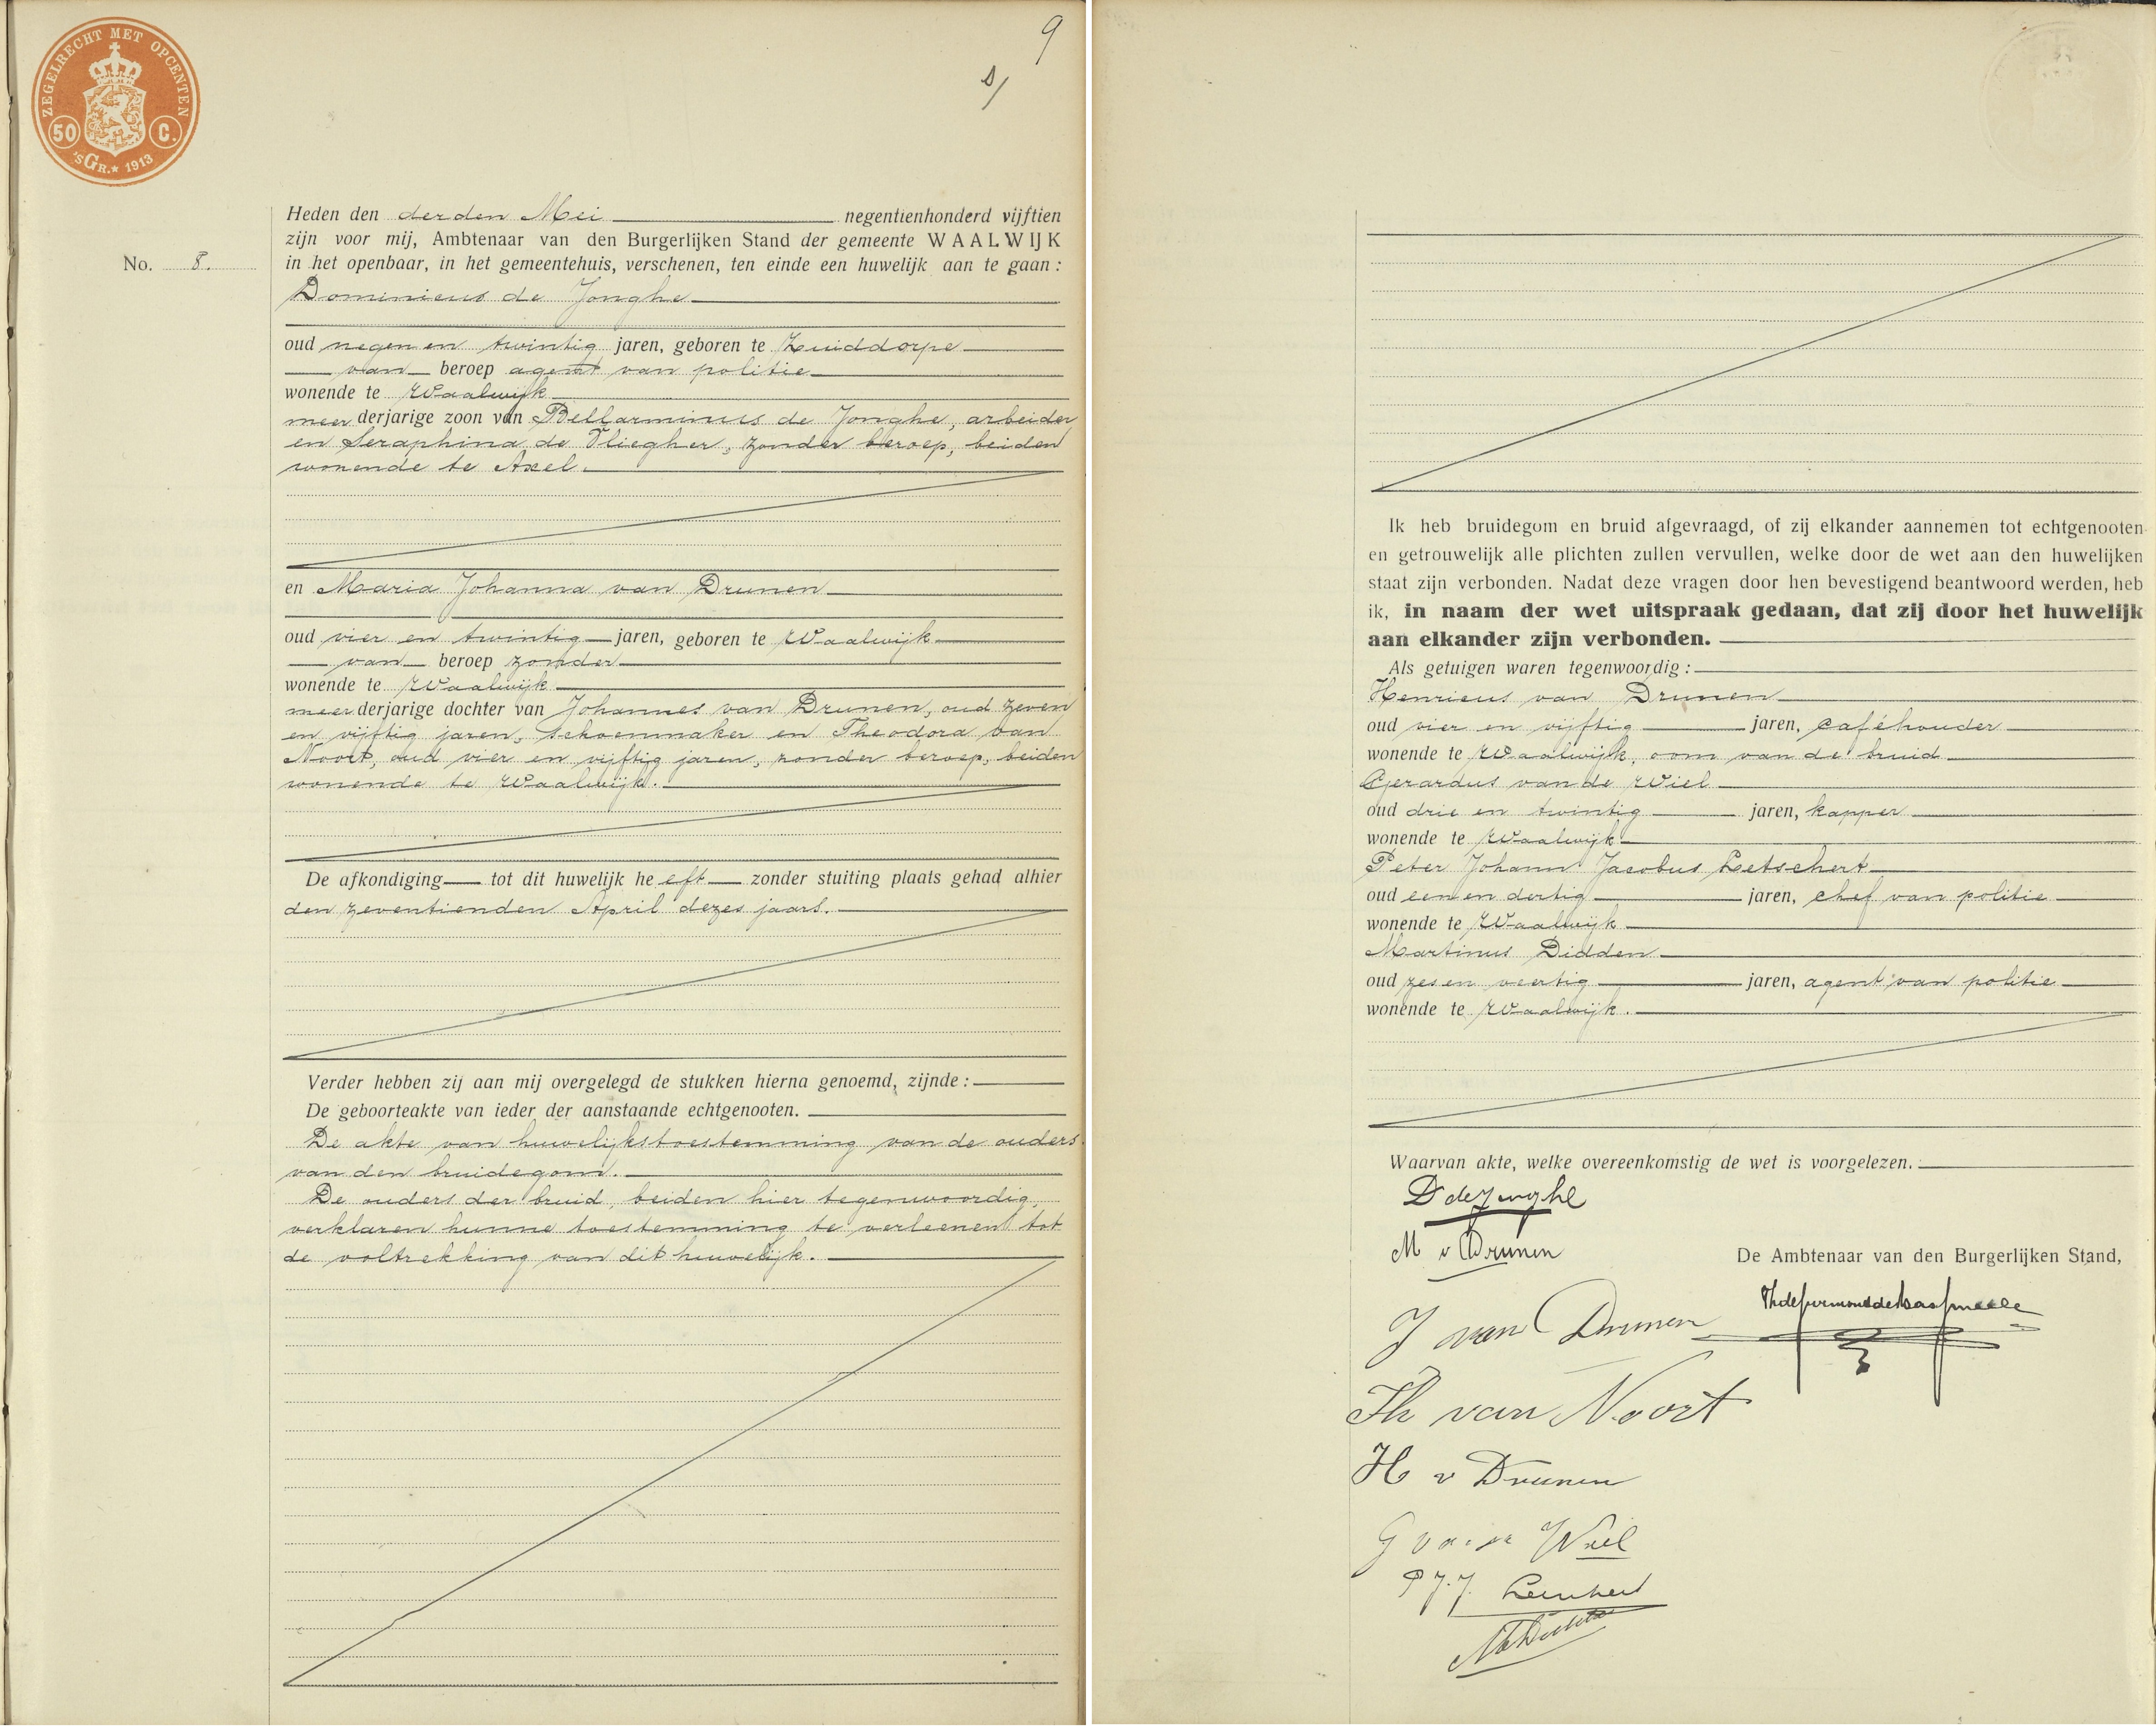 ZEGELRECHT MET OPCENTEN
50 C.
'sGR.* 1913
9
Heden den derden Mei negentienhonderd vijftien
zijn voor mij, Ambtenaar van den Burgerlijken Stand der gemeente WAALWIJK
No. 8.
in het openbaar, in het gemeentehuis, verschenen, ten einde een huwelijk aan te gaan:
Dominicus de Jonghe
oud negen en twintig jaren, geboren te Zuiddorpe
van beroep agent van politie
wonende te Waalwijk
meerderjarige zoon van Bellarminus de Jonghe, arbeider
en Seraphina de Vliegher, zonder beroep, beiden
wonende te Axel.
en Maria Johanna van Drunen
oud vier en twintig jaren, geboren te Waalwijk
van beroep zonder
wonende te Waalwijk
meerderjarige dochter van Johannes van Drunen, oud zeven
en vijftig jaren, schoenmaker en Theodora van
Noort, oud vier en vijftig jaren, zonder beroep, beiden
wonende te Waalwijk.
De afkondiging tot dit huwelijk heeft zonder stuiting plaats gehad alhier
den zeventienden April dezes jaars.
Verder hebben zij aan mij overgelegd de stukken hierna genoemd, zijnde:
De geboorteakte van ieder der aanstaande echtgenooten.
De akte van huwelijkstoestemming van de ouders
van den bruidegom.
De ouders der bruid, beiden hier tegenwoordig,
verklaren hunne toestemming te verleenen tot
de voltrekking van dit huwelijk.
Ik heb bruidegom en bruid afgevraagd, of zij elkander aannemen tot echtgenooten
en getrouwelijk alle plichten zullen vervullen, welke door de wet aan den huwelijken
staat zijn verbonden. Nadat deze vragen door hen bevestigend beantwoord werden, heb
ik, in naam der wet uitspraak gedaan, dat zij door het huwelijk
aan elkander zijn verbonden.
Als getuigen waren tegenwoordig:
Henricus van Drunen
oud vier en vijftig jaren, caféhouder
wonende te Waalwijk, oom van de bruid
Gerardus van de Wiel
oud drie en twintig jaren, kapper
wonende te Waalwijk
Peter Johann Jacobus Letschert
oud een en dertig jaren, chef van politie
wonende te Waalwijk
Martinus Didden
oud zes en veertig jaren, agent van politie
wonende te Waalwijk.
Waarvan akte, welke overeenkomstig de wet is voorgelezen.
D de Jonghe
M v Drunen
De Ambtenaar van den Burgerlijken Stand,
J van Drunen
Th van Noort
H v Drunen
G van de Wiel
P J.J. Letschert